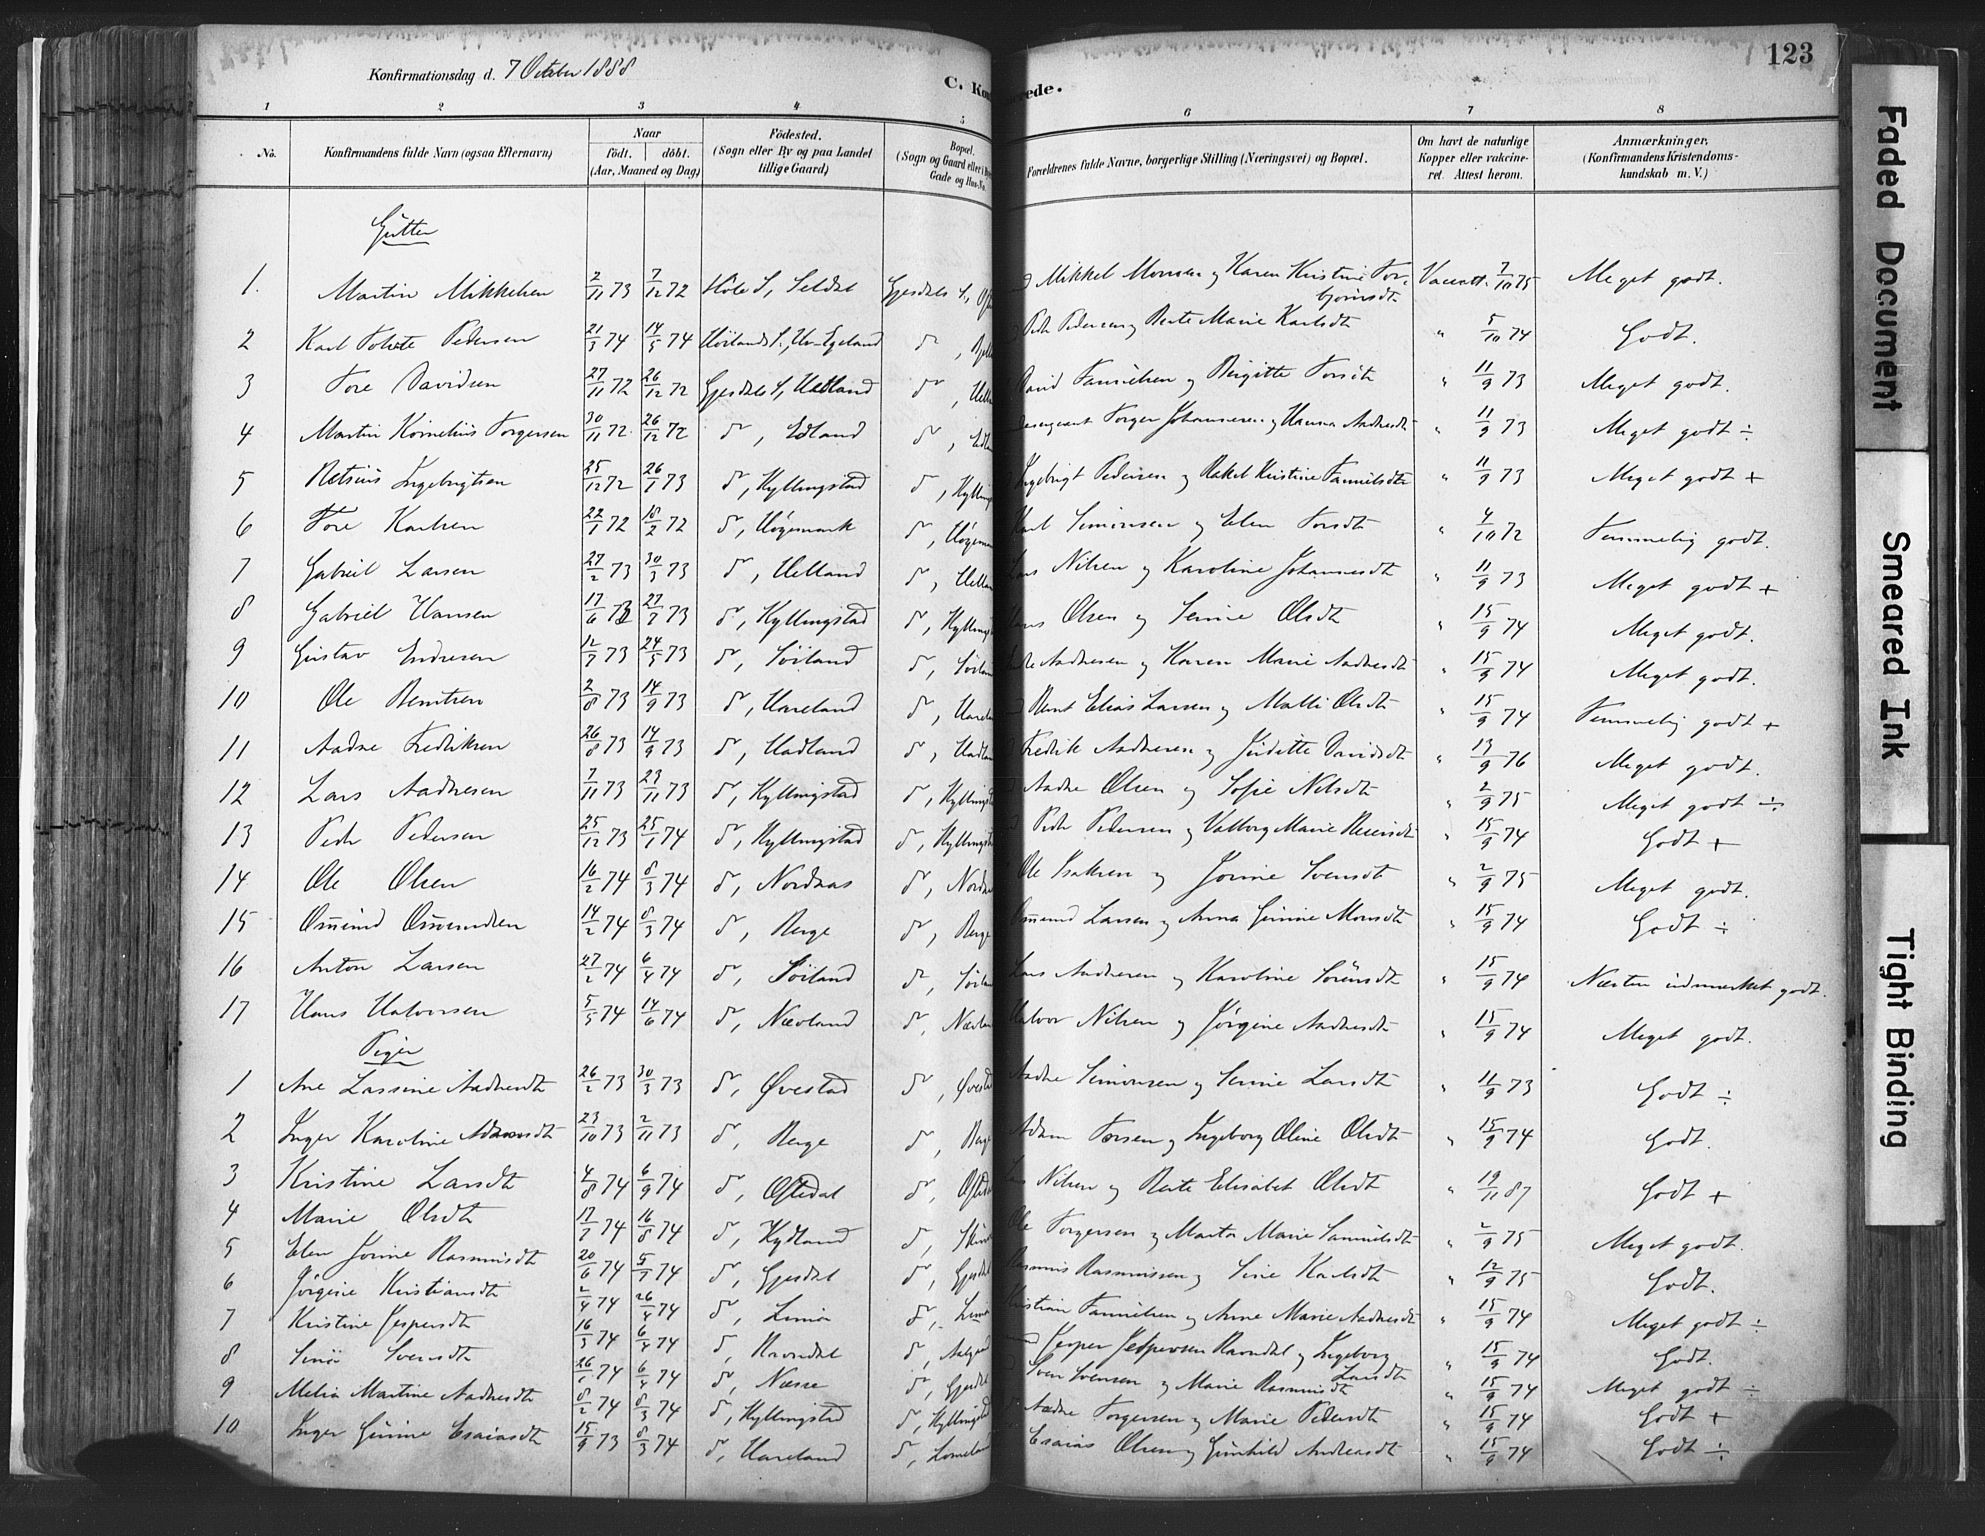 123
Konfirmationsdag d. 7 October 1888
C. Kon
erede.
1 2 3 4 5 6 7 8
No. Konfirmandens fulde Navn (ogsaa Efternavn) Naar født. døbt. (Aar, Maaned og Dag) Födested. (Sogn eller By og paa Landet tillige Gaard) Bopæl. (Sogn og Gaard eller i By Gade og Hus-No. Forældrenes fulde Navne, borgerlige Stilling (Næringsvei) og Bopæl. Om havt de naturlige Kopper eller vakcineret. Attest herom. Anmærkninger. (Konfirmandens Kristendomskundskab m. V.)
Gutter
1. Martin Mikkelsen 2/11 73 7/12 72 Høle S, Seldal Gjesdals S, Mikkel Monsen og Karen Kristine Torbjørnsdt Vaccatt. 7/10 75 Meget godt.
2 Karl Pedersen 21/3 74 14/5 74 Høilands S., Egeland d°, Pedr Pedersen og Berte Marie Karlsdt " 5/10 74 Godt.
3 Tore Davidsen 27/11 72 26/12 72 Gjesdals S, Uelland d°, Uell David Tanielsen og Birgitte Torsdt " 11/9 73 Meget godt.
4 Martin Kornelius Torgersen 30/11 72 26/12 72 d°, Edland d°, Edl Torger Johannesen og Hanna Aadnesdt " 11/9 73 Meget godt ÷
5 Retsius Ingebrigtsen 25/12 72 26/1 73 d°, Kyllingstad d°, Kylling Ingebrigt Pedersen og Rakel Kristine Tanielsdtr " 11/9 73 Meget godt +
6 Tore Karlsen 22/1 72 18/2 72 d°, Høgemark d°, Høgem Karl Simonsen og Elen Torsdt " 4/10 72 Temmelig godt.
7 Gabriel Larsen 27/2 73 30/3 73 d°, Uelland d°, Uellan Lars Nilsen og Karoline Johannesdt " 11/9 73 Meget godt +
8 Gabriel Hansen 17/6 73 27/7 73 d°, Kyllingstad d°, Kyllings Hans Olsen og Serine Olsdt " 15/9 74 Meget godt.
9 Gustav Endresen 12/5 73 24/5 73 d°, Söiland d°, Söilan Endre Aadnesen og Karen Marie Aadnesdt " 15/9 74 Meget godt.
10 Ole Berntsen 2/8 73 14/9 73 d°, Hareland d°, Harelan Bernt Elias Larsen og Malli Olsdt " 15/9 74 Temmelig godt +
11 Aadne Fredriksen 26/8 73 14/9 73 d°, Hadland d°, Hadlan Fredrik Aadnesen og Juditte Davidsdt " 13/9 76 Meget godt.
12 Lars Aadnesen 7/11 73 23/11 73 d°, Kyllingstad d°, Kyllingst Aadne Olsen og Sofie Nilsdt " 2/9 75 Meget godt ÷
13 Pedr Pedersen 25/12 73 25/1 74 d°, Kyllingstad d°, Kyllingst Pedr Pedersen og Valborg Marie " 15/9 74 Godt +
14 Ole Olsen 16/2 74 8/3 74 d°, Nordaas d°, Norda Ole Isaksen og Jorine Svensdt " 2/9 75 Meget godt.
15 Osmund Osmundsen 14/2 74 8/3 74 d°, Berge d°, Berge Osmund Larsen og Anna Gurine Monsdt " 15/9 74 Godt ÷
16 Anton Larsen 27/2 74 6/4 74 d°, Söiland d°, Söilan Lars Aadnesen og Karoline Sörensdt " 15/9 74 Næsten udmærket godt.
17 Hans Halvorsen 5/5 74 14/6 74 d°, Nævland d°, Nævlan Halvor Nilsen og Jørgine Aadnesdt " 15/9 74 Meget godt.
Piger
1 Ane Lassine Aadnesdt 26/2 73 30/3 73 d°, Øvestad d°, Øvest Aadne Simonsen og Serine Larsdt " 11/9 73 Godt ÷
2 Inger Karoline Adamsdt 23/10 73 2/11 73 d°, Berge d°, Berge Adam Torsen og Ingeborg Oline Olsdt " 15/9 74 Godt.
3 Kristine Larsdt 4/8 74 6/9 74 d°, Oftedal d°, Ofted Lars Nilsen og Berte Elisabet Olsdt " 19/11 87 Godt +
4 Marie Olsdt 17/7 74 16/8 74 d°, Kydland d°, Ole Torgersen og Marta Marie Samuelsdt " 2/9 75 Meget godt.
5 Elen Jorine Rasmusdt 20/6 74 5/7 74 d°, Gjesdal d°, Gjesdal Rasmus Rasmussen og Sine Karlsdt " 12/9 75 Godt.
6 Jørgine Kristiansdt 2/4 74 26/4 74 d°, Limö d°, Lima Kristian Tanielsen og Anne Marie Aadnesdt " 15/9 74 Meget godt ÷
7 Kristine Jespersdt 16/3 74 6/4 74 d°, Ravndal d°, Aalga Jesper Jespersen Ravndal og Ingeborg Larsdt " 15/9 74 Godt.
8 Svensdt 26/ 74 6/4 74 d°, Næsse d°, Gjesdal Sven Svensen og Marie Rasmusdt " 15/9 74 Meget godt ÷
9 Melia Martine Aadnesdt 8/2 74 8/3 74 d°, Kyllingstad d°, Kyllingstad Aadne Torgersen og Marie Pedersdt " 15/9 74 Godt +
10 Inger Gurine Esaiasdt 15/9 73 8/3 74 d°, Hareland d°, Esaias Olsen og Gunhild Andreasdt " 15/9 74 Godt ÷
Faded Document
Smeared Ink
Tight Binding